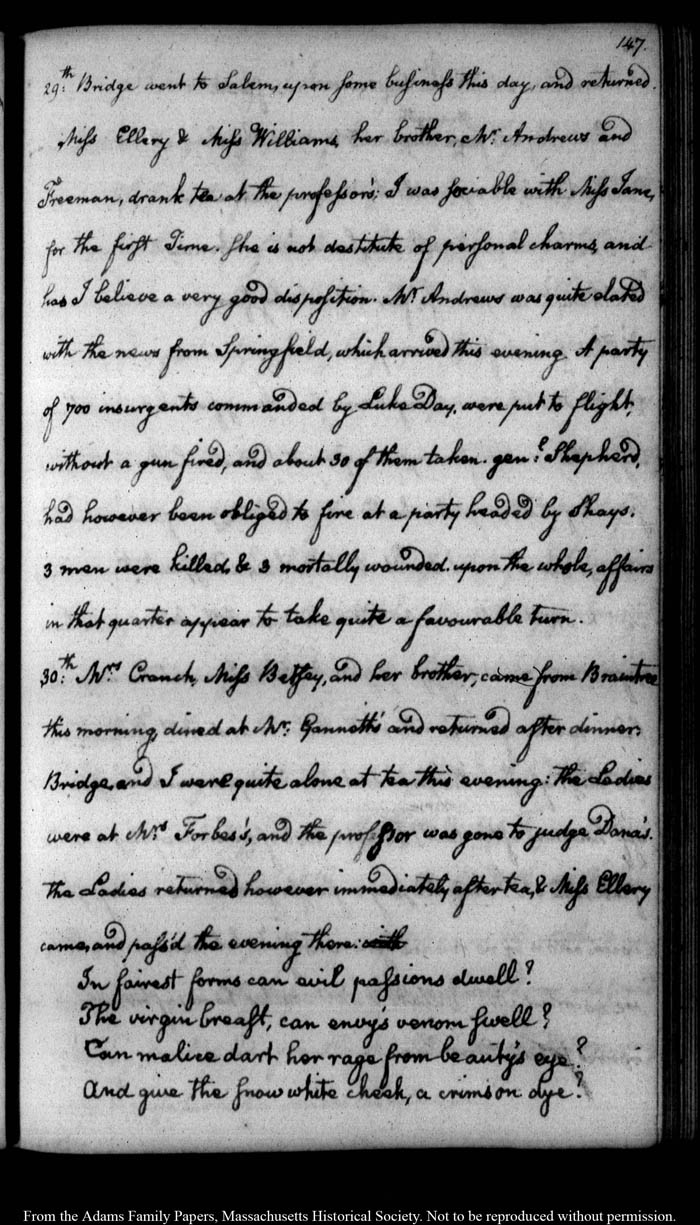 147.
29:th Bridge went to Salem, upon some business this day, and returned.
Miss Ellery & Miss Williams, her brother, Mr. Andrews and
Freeman, drank tea at the professor's: I was sociable with Miss Jane,
for the first Time. She is not destitute of personal charms, and
has I believe a very good disposition. Mr. Andrews was quite elated
with the news from Springfield, which arrived this evening. A party
of 700 insurgents commanded by Luke Day, were put to flight,
without a gun fired, and about 30 of them taken. genl. Shepherd,
had however been obliged to fire at a party headed by Shays.
3 men were killed, & 3 mortally wounded. upon the whole, affairs
in that quarter appear to take quite a favourable turn.
30:th Mrs. Cranch, Miss Betsey, and her brother, came from Braintree
this morning, dined at Mr. Gannett's and returned after dinner.
Bridge, and I were quite alone at tea this evening: the Ladies
were at Mrs. Forbes's, and the professor was gone to judge Dana's.
the Ladies returned however immediately after tea, & Miss Ellery
came, and pass'd the evening there. with
In fairest forms can evil passions dwell?
The virgin breast, can envy's venom swell?
Can malice dart her rage from beauty's eye?
And give the snow white cheek, a crimson dye?
From the Adams Family Papers, Massachusetts Historical Society. Not to be reproduced without permission.